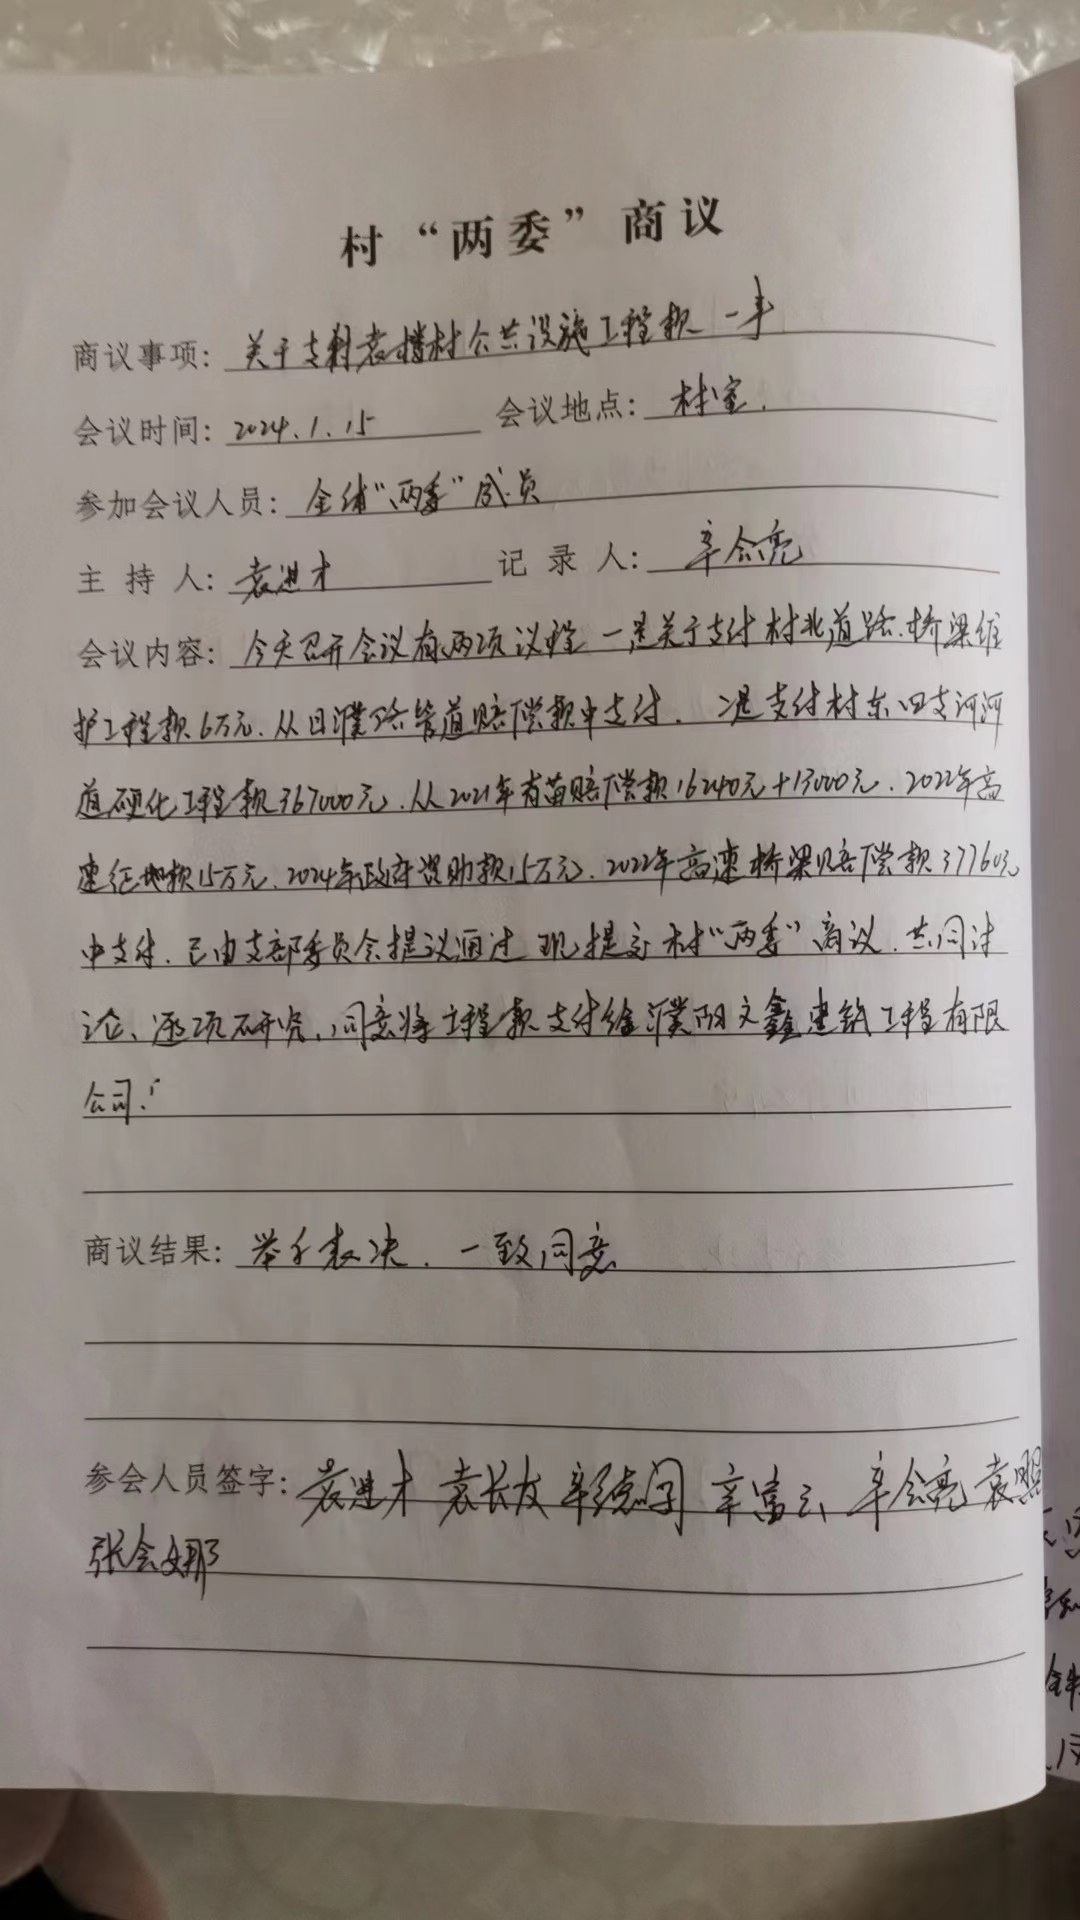 村“两委”商议
商议事项：关于支剩袁楼村公共设施工程款一事
会议时间：2024.1.15 会议地点：村室.
参加会议人员：全体“两委”成员
主持人：袁进才 记录人：辛会亮
会议内容：今天召开会议有两项议程 一是关于支付村北道路、桥梁维
护工程款6万元.从日濮洛管道赔偿款中支付. 二是支付村东四支河河
道硬化工程款367000元.从2021年青苗赔偿款16240元+13000元.2022年高
速征地款15万元.2024年政府资助款15万元.2022年高速桥梁赔偿款37760元
中支付.已由支部委员会提议通过 现提交村“两委”商议.共同讨
论、逐项研究,同意将工程款支付给濮阳文鑫建筑工程有限
公司.
商议结果：举手表决.一致同意
参会人员签字：袁进才 袁长友 辛富云 辛会亮 袁
张会娜